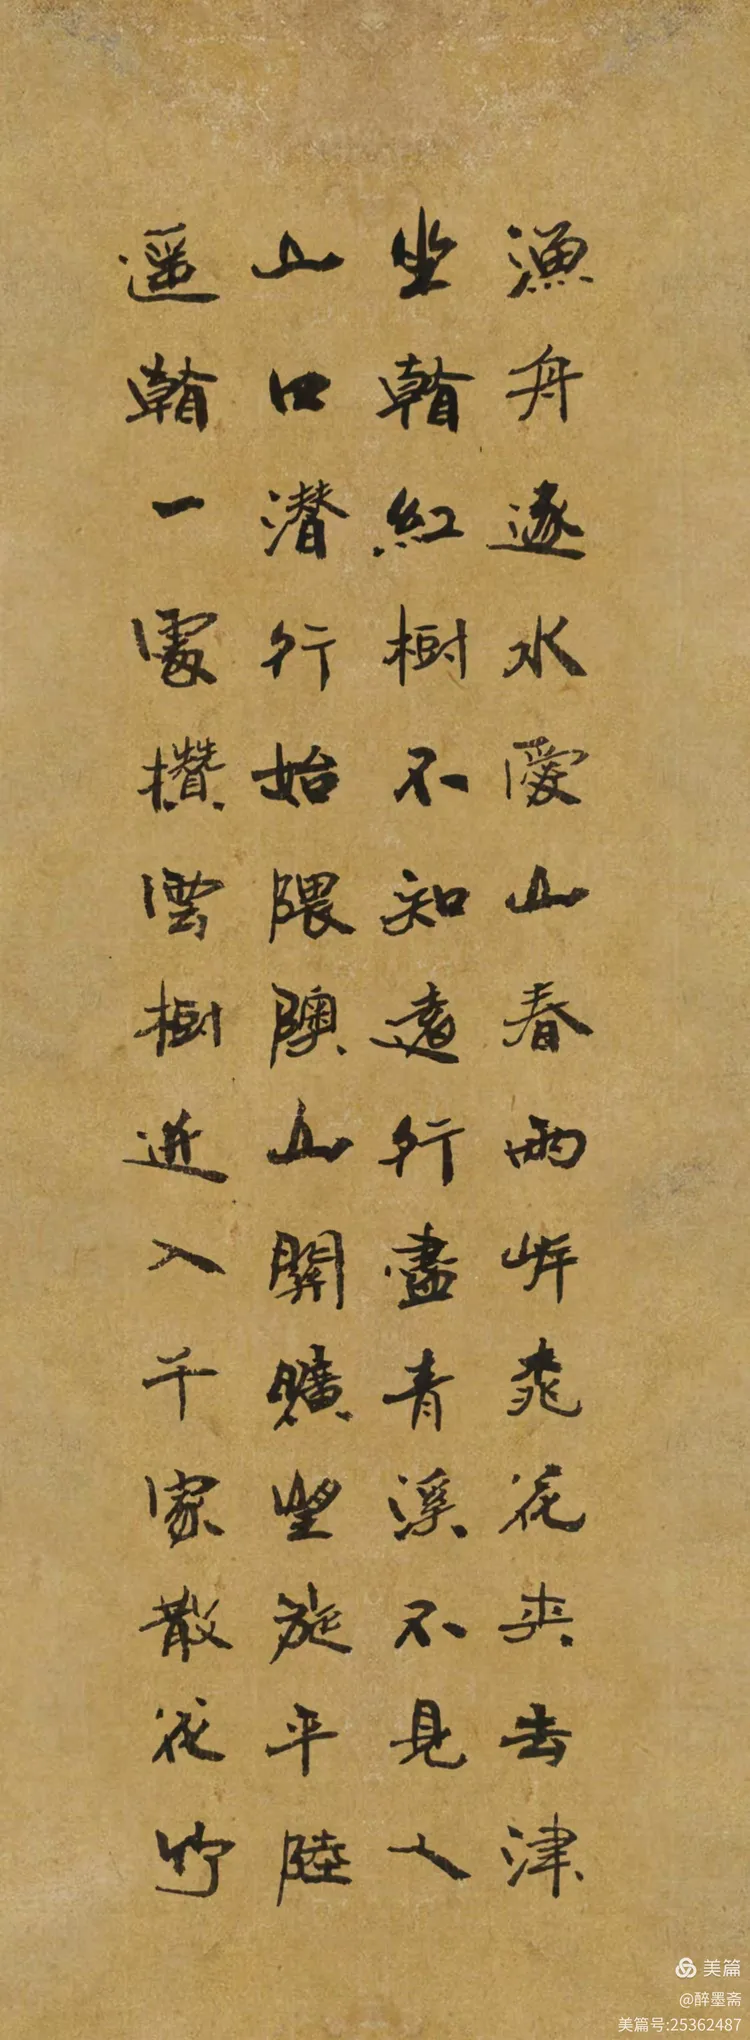 漁舟逐水愛山春兩岸桃花夾去津
坐看紅樹不知遠行盡青溪不見人
山口潛行始隈隩山開曠望旋平陸
遥看一處攢雲樹近入千家散花竹
美篇
@醉墨斋
美篇号:25362487